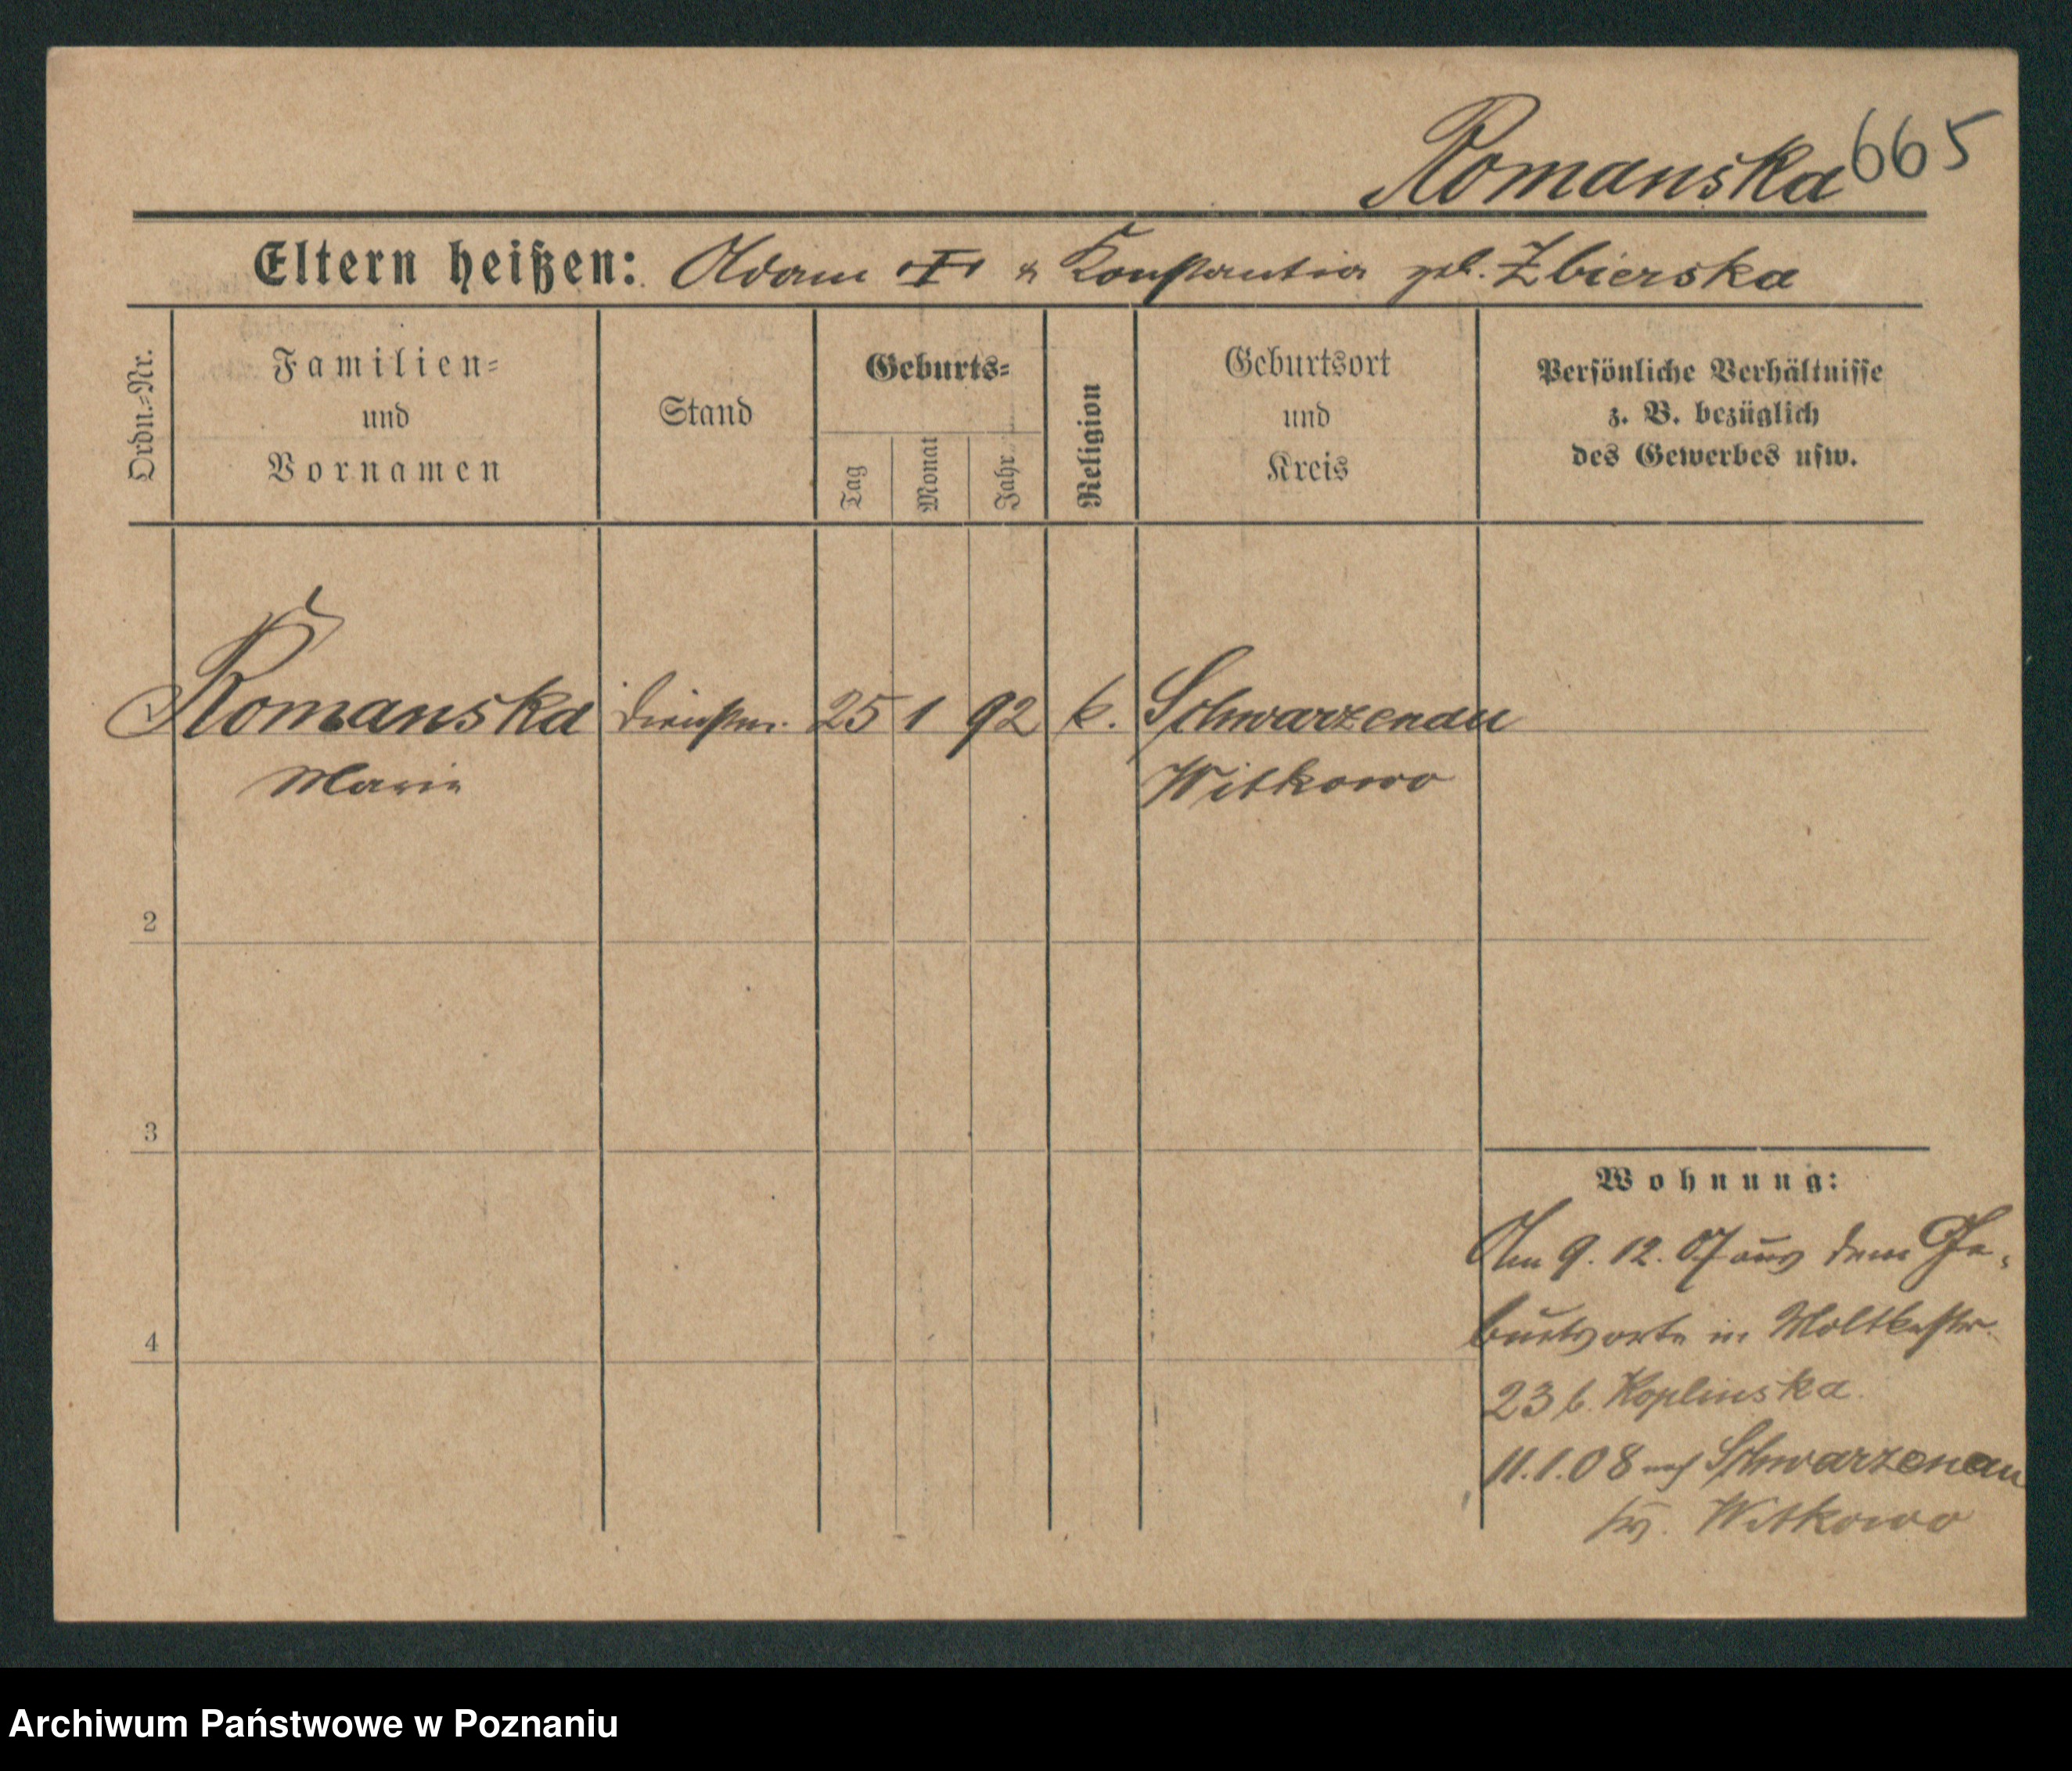 Romanska 665
Eltern heißen: Adam † & Konstantia geb. Zbierska
Ordn.=Nr.
Familien=
und
Vornamen
Stand
Geburts=
Tag
Monat
Jahr
Religion
Geburtsort
und
Kreis
Persönliche Verhältnisse
z. B. bezüglich
des Gewerbes usw.
Romanska Dienstm. 25 1 92 k. Schwarzenau
Marie Witkowo
2
3
4
Wohnung:
Am 9. 12. 07 aus dem Ge-
burtsorte in Moltkestr.
23 b. Koplinska.
11.1.08 nach Schwarzenau
Witkowo
Archiwum Państwowe w Poznaniu